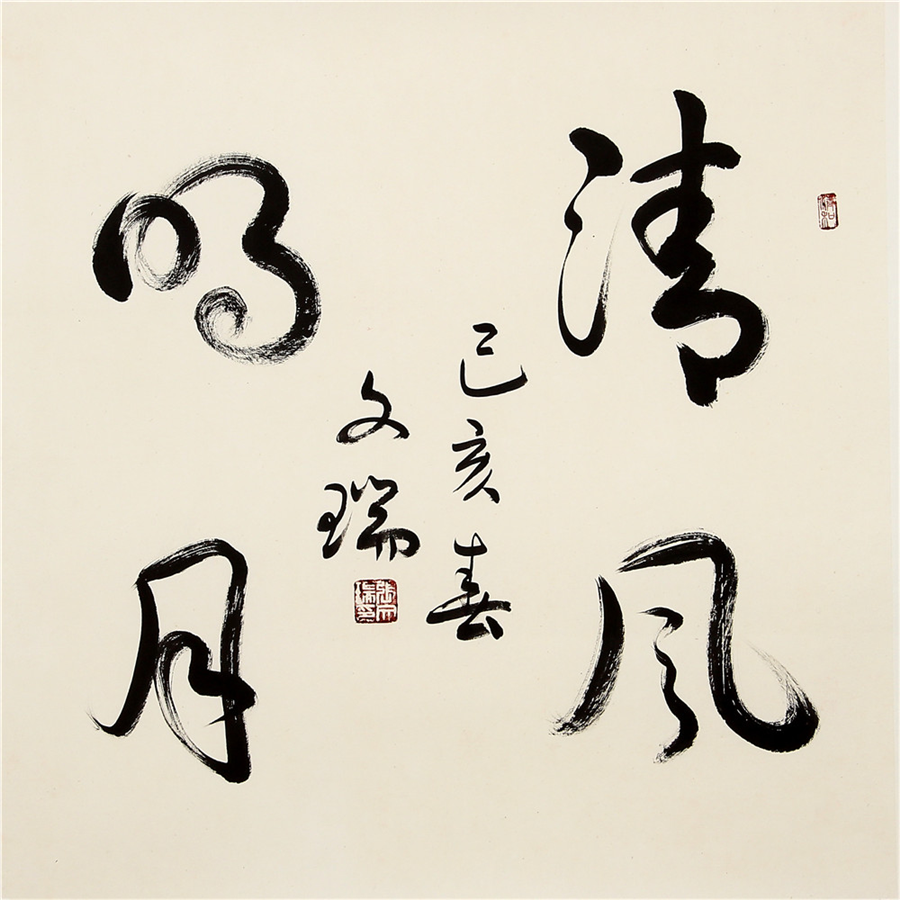 清风
明月
己亥春
文瑞